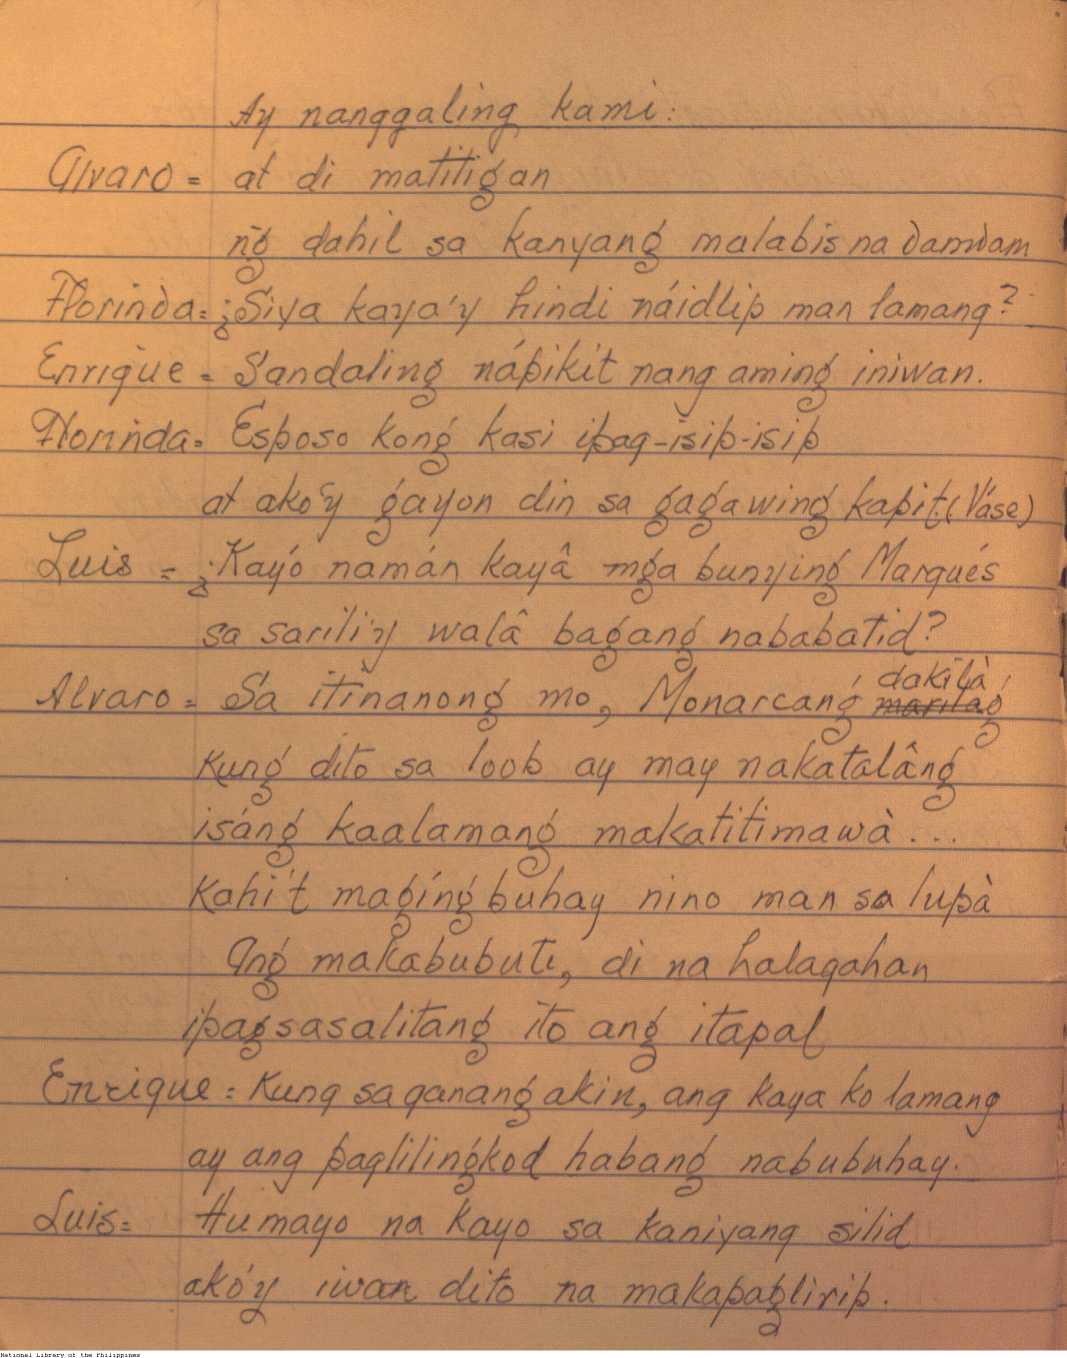 Ay nanggaling kami:
Alvaro = at di matitigan
ng dahil sa kanyang malabis na damdam
Florinda = ¿Siya kaya'y hindi náidlip man lamang?
Enrique = Sandaling nápikit nang aming iniwan.
Florinda = Esposo kong kasi ipag-isip-isip
at ako'y gayon din sa gagawing kapit. (Váse)
Luis = ¿Kayó namán kayâ mga bunying Marqués
sa sarili'y walâ bagang nababatid?
Alvaro = Sa itinanong mo, Monarcang dakilà marilág
kung dito sa loob ay may nakatalâng
isáng kaalamang makatitimawà ...
Kahi't magíng buhay nino man sa lupà
Ang makabubuti, di na halagahan
ipagsasalitang ito ang itapal
Enrique = Kung sa ganang akin, ang kaya ko lamang
ay ang paglilingkod habang nabubuhay.
Luis = Humayo na kayo sa kaniyang silid
ako'y iwan dito na makapaglirip.
National Library of the Philippines